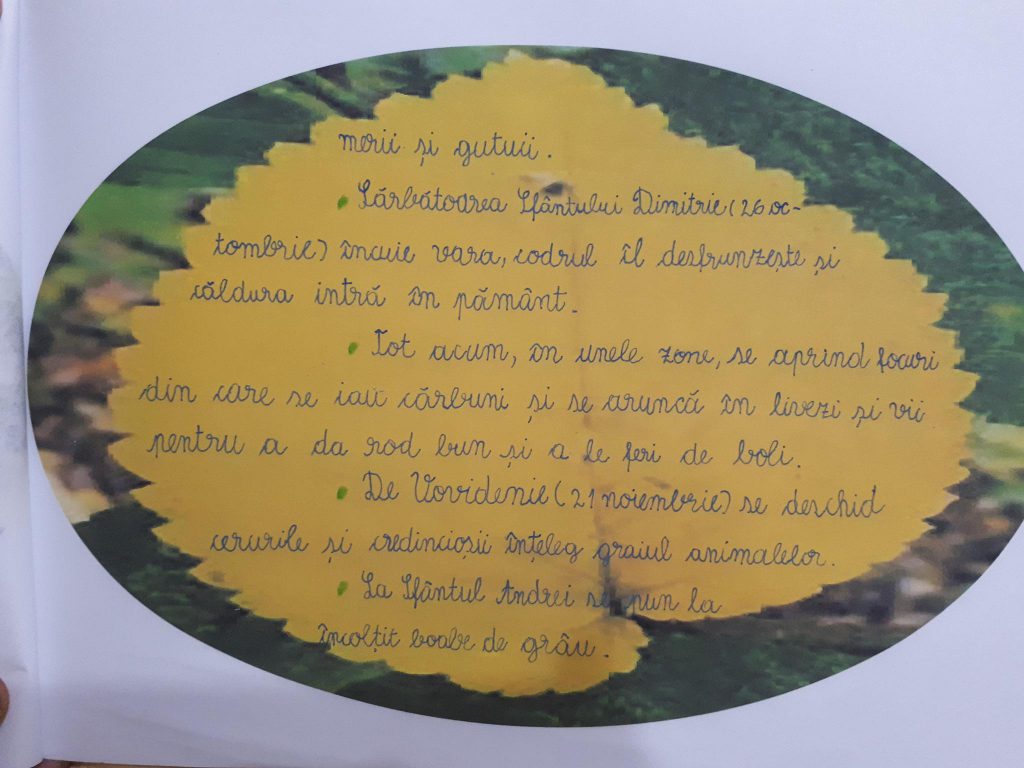 merii și gutuii.
Sărbătoarea Sfântului Dimitrie (26 oc-
tombrie) încuie vara, codrul îl desfrunzește și
căldura intră în pământ.
Tot acum, în unele zone, se aprind focuri
din care se iau cărbuni și se aruncă în livezi și vii
pentru a da rod bun și a le feri de boli.
De Vovidenie (21 noiembrie) se deschid
cerurile și credincioșii înțeleg graiul animalelor.
La Sfântul Andrei se pun la
încolțit boabe de grâu.